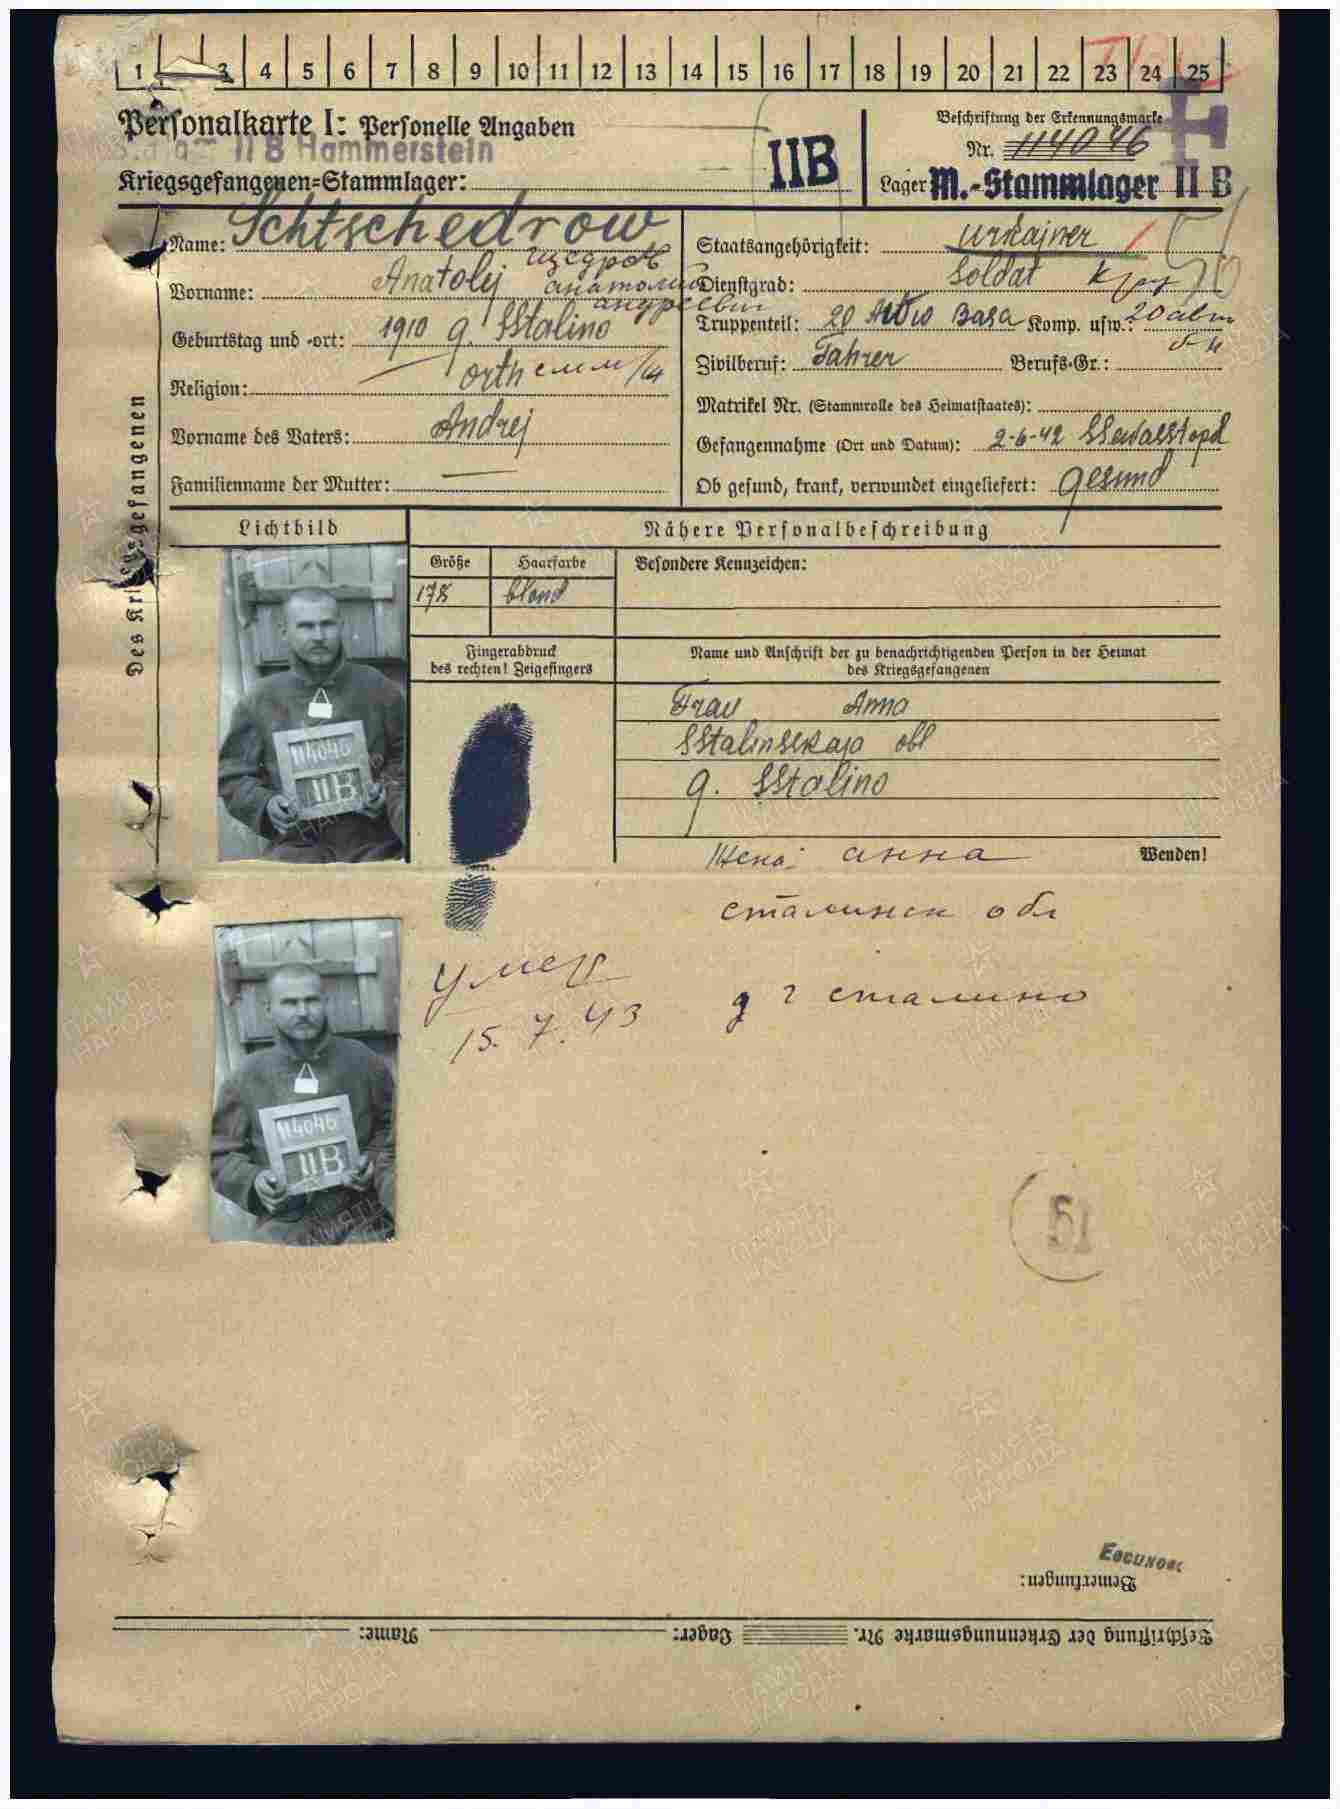 1 3 4 5 6 7 8 9 10 11 12 13 14 15 16 17 18 19 20 21 22 23 24 25
Personalkarte I: Personelle Angaben
Stalag II B Hammerstein
Kriegsgefangenen=Stammlager:
IIB
Beschriftung der Erkennungsmarke
Nr. 114046
Lager M.-Stammlager II B
Des Kriegsgefangenen
Name: Schtschedrow
Щедров
Vorname: Anatolej
Анатолий
Андреевич
Geburtstag und -ort: 1910 g. SStalino
Religion: orth
Vorname des Vaters: Andrej
Familienname der Mutter: —
Staatsangehörigkeit: Urkajner
Dienstgrad: Soldat
Truppenteil: 20 Awio Basa Komp. usw.:
Zivilberuf: Fahrer Berufs-Gr.:
Matrikel Nr. (Stammrolle des Heimatstaates):
Gefangennahme (Ort und Datum): 2-6-42 SSewastopol
Ob gesund, krank, verwundet eingeliefert: gesund
Lichtbild
Nähere Personalbeschreibung
Größe Haarfarbe Besondere Kennzeichen:
178 blond
Fingerabdruck
des rechten! Zeigefingers
Name und Anschrift der zu benachrichtigenden Person in der Heimat
des Kriegsgefangenen
Frau Anna
SStalinskaja obl
g. SStalino
114046
IIB
Wenden!
Жена: Анна
Сталинск обл
г Сталино
умер
15.7.43
114046
IIB
51
Евсинов
Bemerkungen:
Beschriftung der Erkennungsmarke Nr. Lager: Name:
ПАМЯТЬ НАРОДА